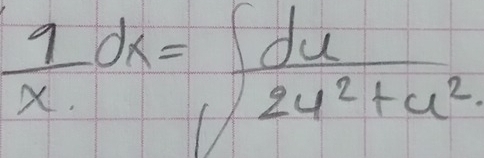 1/x. dx = ∫ du/(2u² + u²).